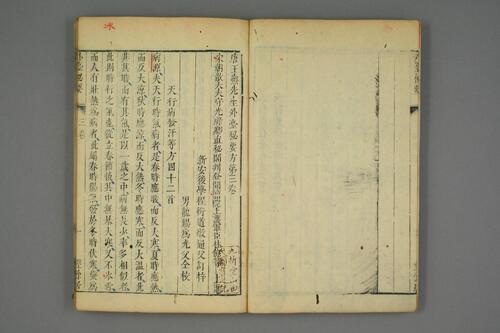 唐王燾先生外臺秘要方第三卷
宋朝散大夫守光祿卿直秘閣判登聞簡院上護軍臣林億等上進
新安後學程衍道敬通父訂梓
天行病發汗等方四十二首
病源夫天行時氣病者是春時應暖而反大寒夏時應熱
而反大涼秋時應涼而反大熱冬時應寒而反大溫者此
非其時而有其氣是以一歲之中病無長少率多相似者
此則時行之氣也從立春節後其中無暴大寒又不冰雪
而人有壯熱為病者此屬春時陽氣發於冬時伏寒變為
外臺秘要
三卷